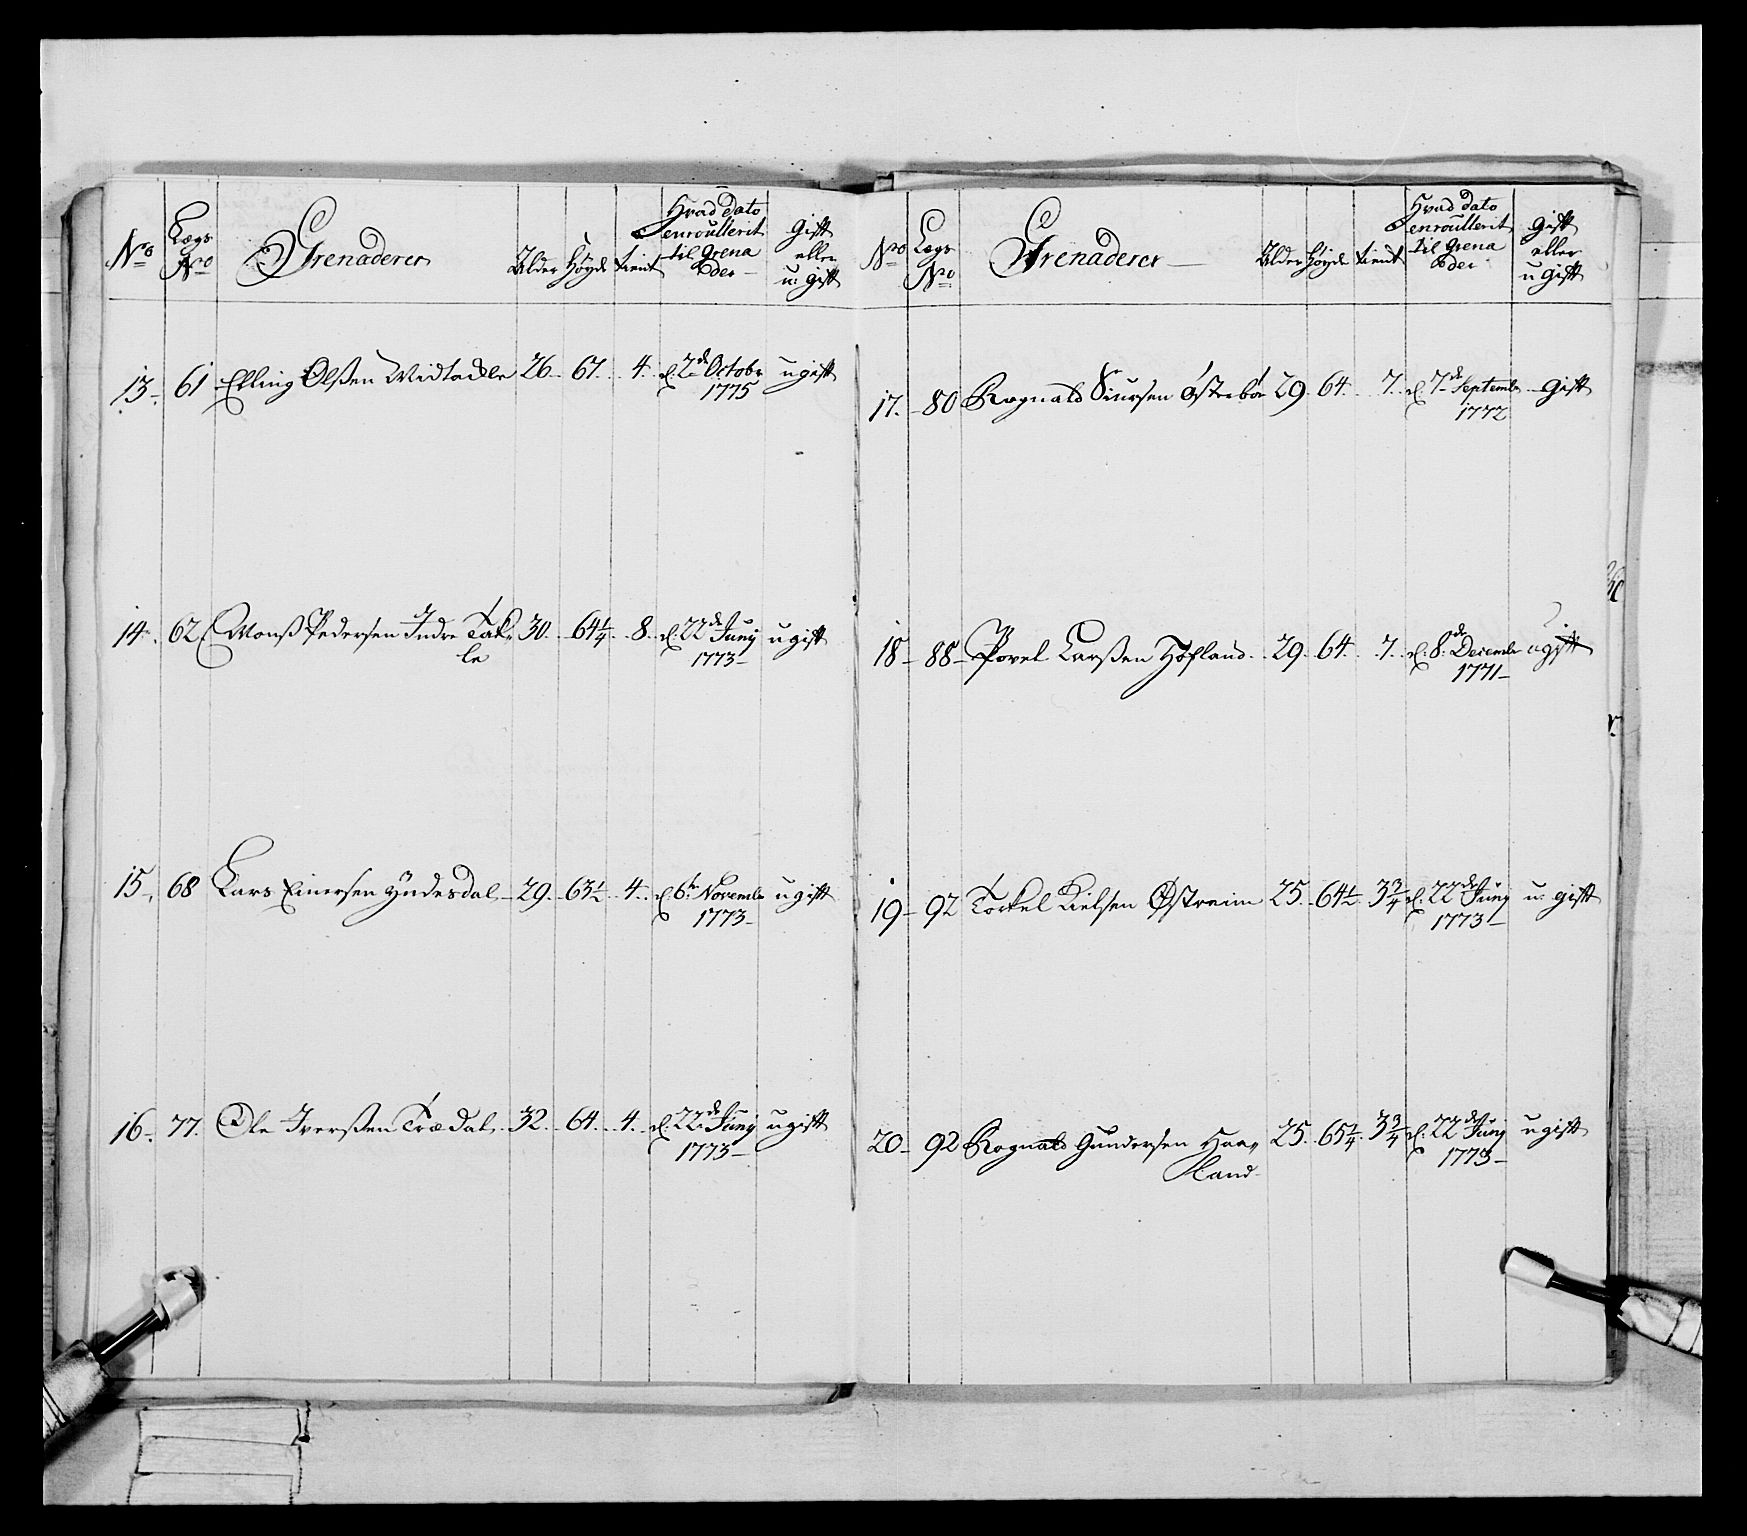 No Lægs No Grenaderer Alder Höyde tient Hvad Dato enroullerit til Grenader gift eller u: gift
13. 61 Elling Olßen Widtadle 26. 67. 4. d. 2de Octobr 1775 ugift
14. 62 Monß Pedersen Indre Takle 30. 64 1/4 8. d. 22de Junÿ 1773 ugift
15. 68 Lars Einersen Yndesdal 29. 63 1/2 4. d. 6te Novembr 1773 ugift
16. 77. Ole Iverßen Trædal 32. 64. 4. d. 22de Junÿ 1773 ugift
No Lægs No Grenaderer Alder Höyde tient Hvad dato enroullerit til Grenader gift eller u gift
17. 80 Rognald Siursen Österbö 29. 64. 7. d. 7de Septembr 1772 gift
18 88 Povel Larßen Höfland 29. 64. 7. d. 8de Decembr 1771 ugift
19 92 Torkel Nielsen Østreim 25. 64 1/2 3 3/4 d. 22de Junÿ 1773 u: gift
20 92 Rognald Gundersen Haaland 25. 65 1/4 3 3/4 d. 22de Junÿ 1773 ugift